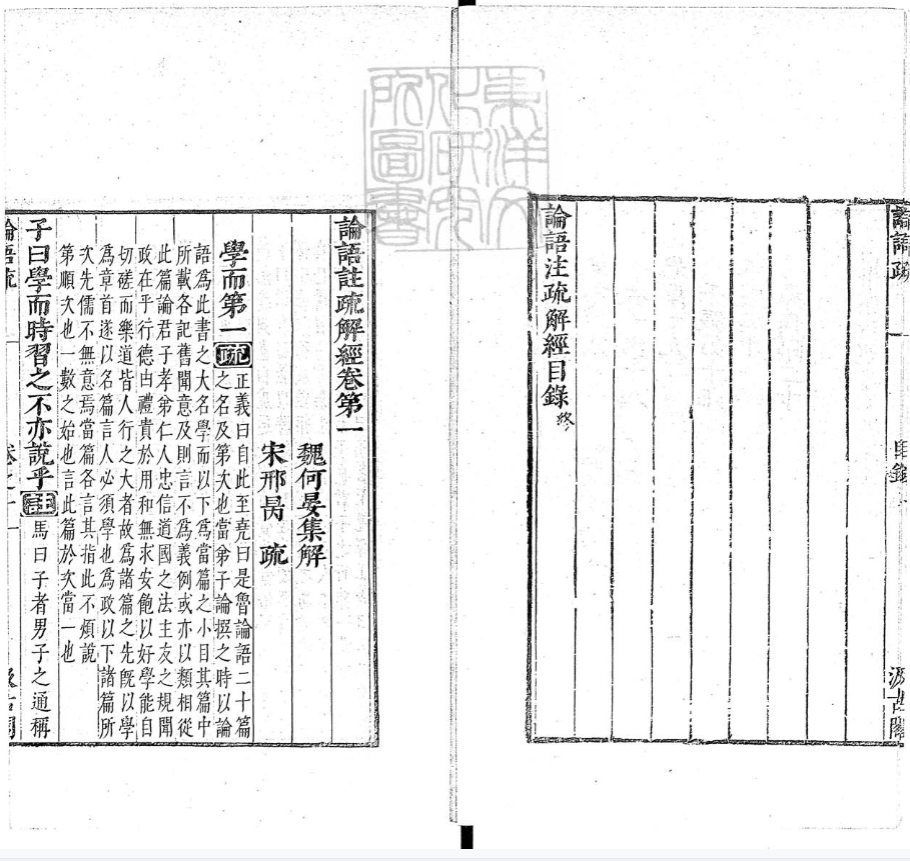 論語疏 一 目錄 汲古閣
論語注疏解經目錄終
東洋文
化研究
所圖書
論語註疏解經卷第一
魏何晏集解
宋邢昺 疏
學而第一 疏
正義曰自此至堯曰是魯論語二十篇
之名及第次也當弟子論撰之時以論
語爲此書之大名學而以下爲當篇之小目其篇中
所載各記舊聞意及則言不爲義例或亦以類相從
此篇論君子孝弟仁人忠信道國之法主友之規聞
政在乎行德由禮貴於用和無求安飽以好學能自
切磋而樂道皆人行之大者故爲諸篇之先旣以學
爲章首遂以名篇言人必須學也爲政以下諸篇所
次先儒不無意焉當篇各言其指此不煩說
第順次也一數之始也言此篇於次當一也
子曰學而時習之不亦說乎 註 馬曰子者男子之通稱
論語疏 卷之一 一 汲古閣